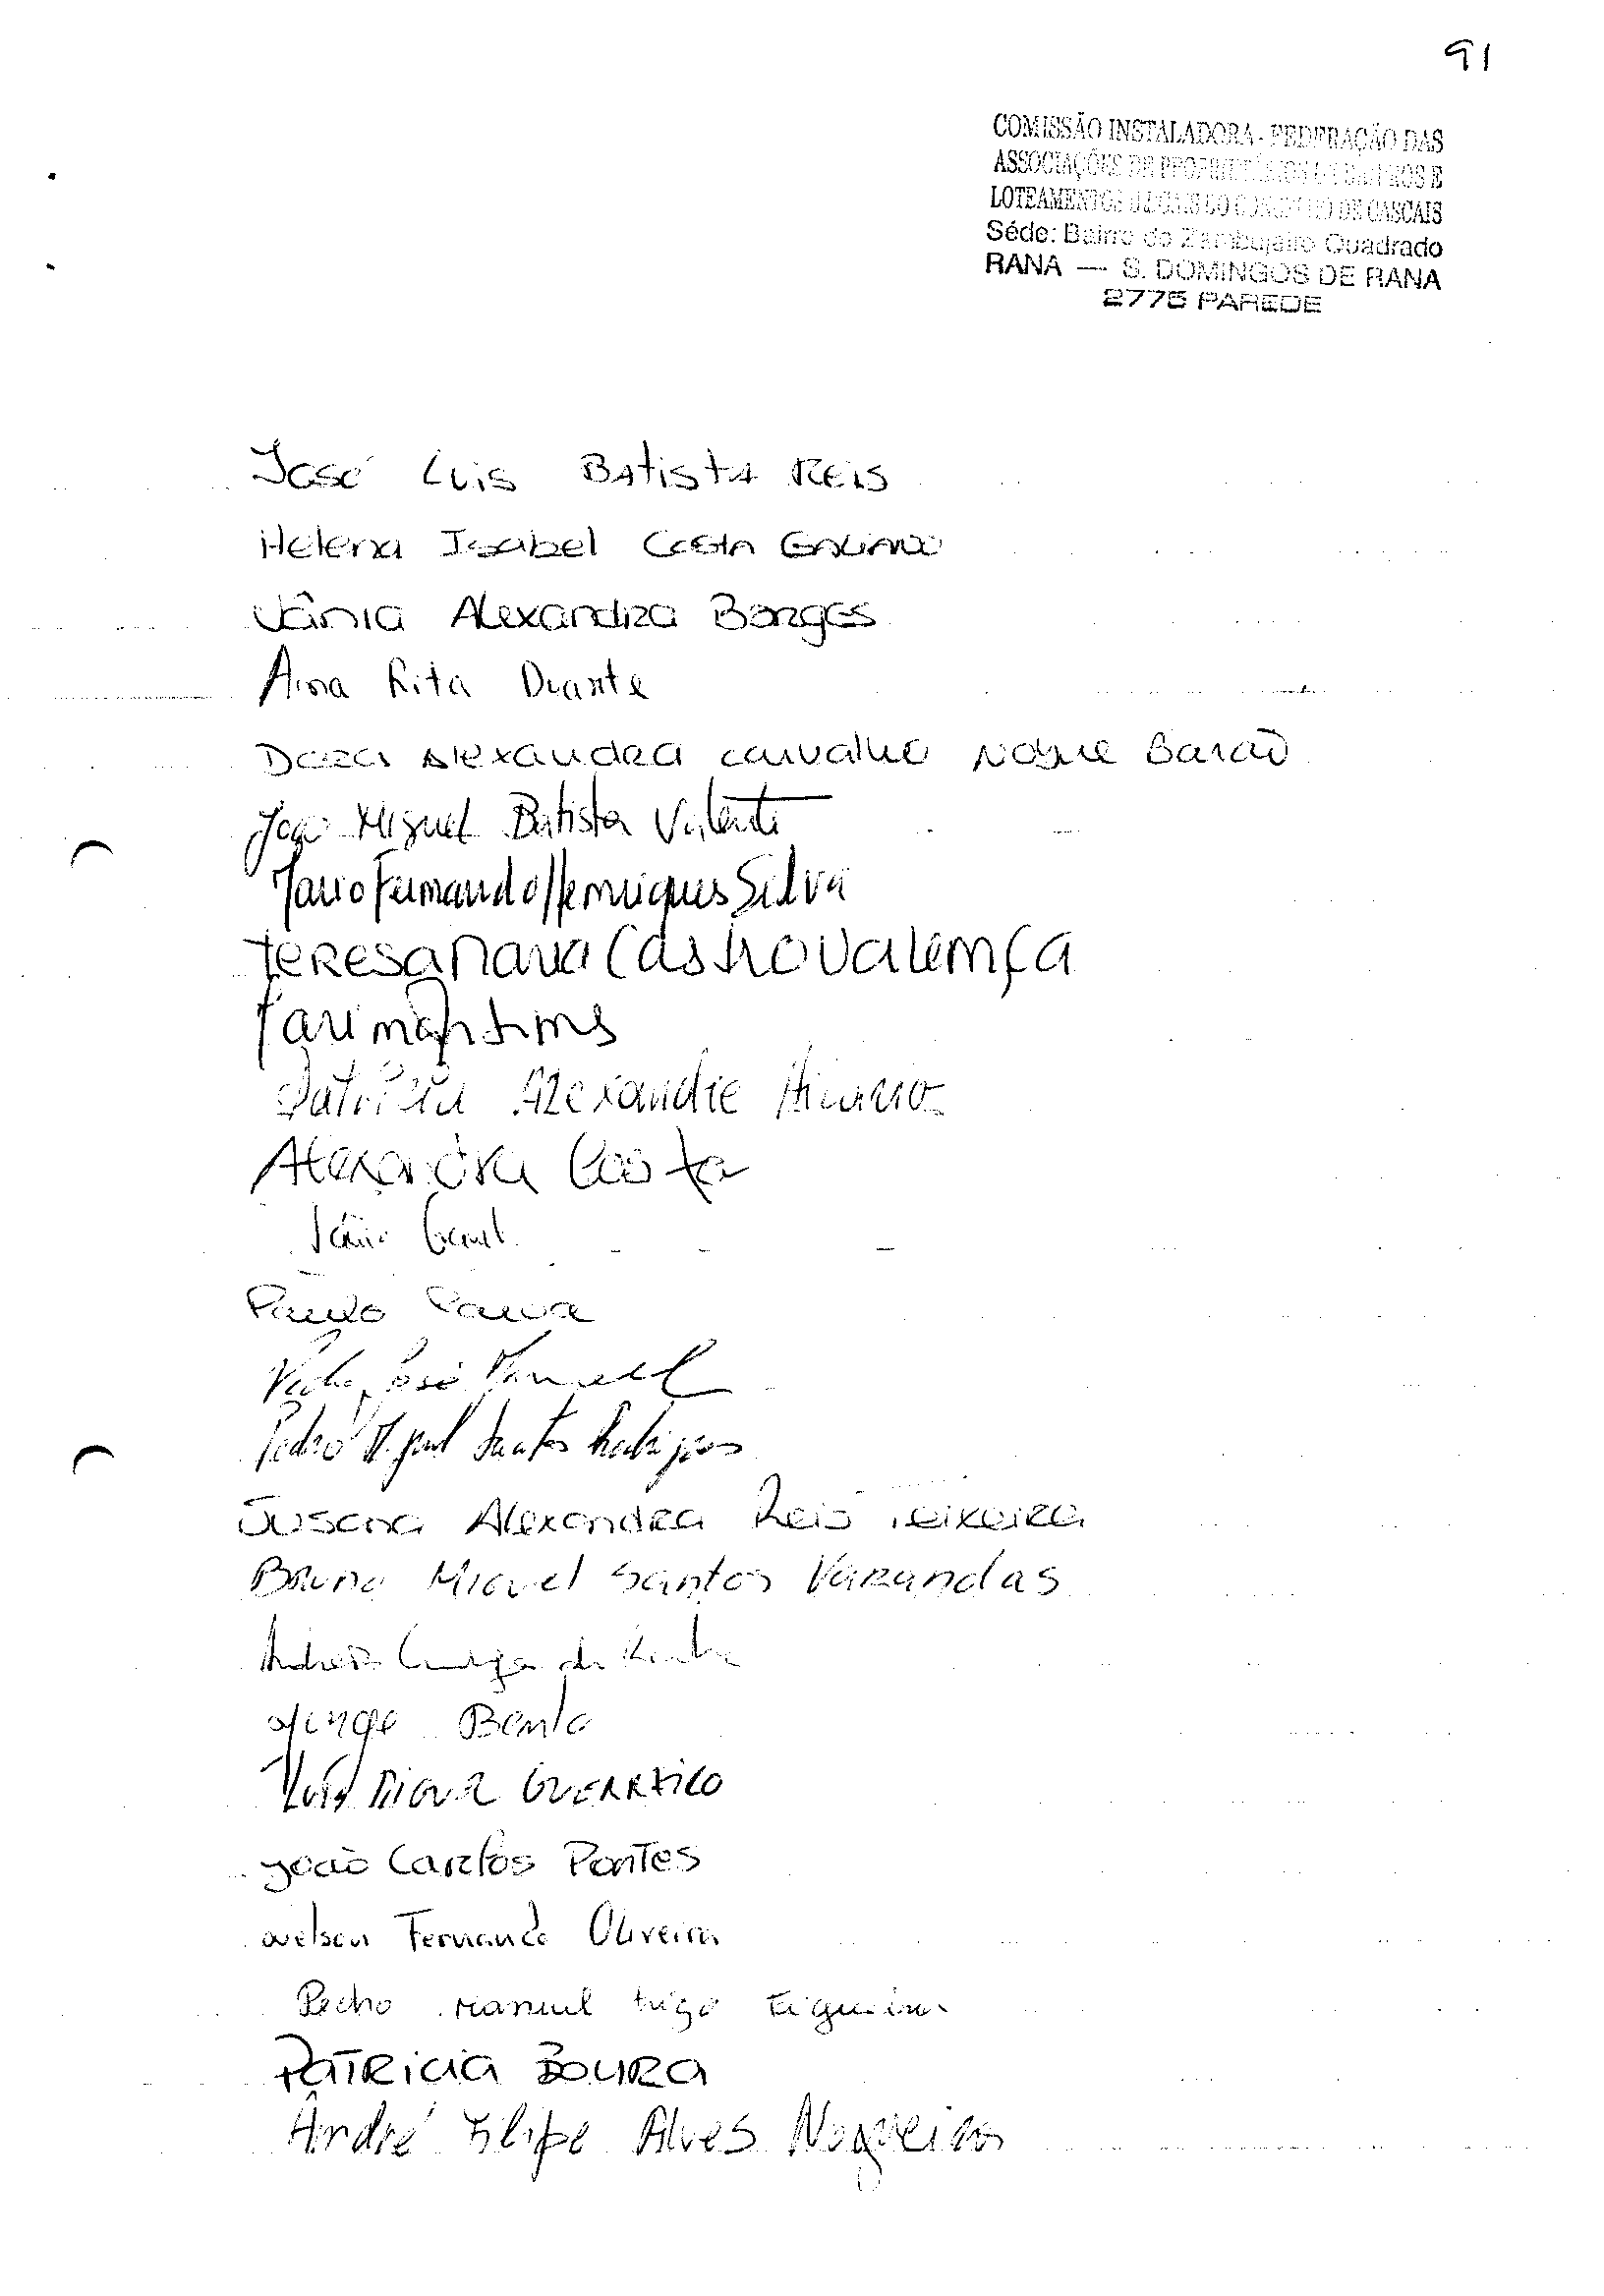 91
COMISSÃO INSTALADORA - FEDERAÇÃO DAS
ASSOCIAÇÕES DE PROPRIETÁRIOS DE BAIRROS E
LOTEAMENTOS ILEGAIS DO CONCELHO DE CASCAIS
Séde: Bairro do Zambujeiro Quadrado
RANA — S. DOMINGOS DE RANA
2775 PAREDE
José Luis Batista Reis
Helena Isabel Costa Galindo
Vânia Alexandra Borges
Ana Rita Duarte
Dora Alexandra Carvalho Nobre Barão
João Miguel Batista Valente
Mario Fernando Henriques Silva
Teresa Maria Castro Valença
Martins
Patrícia Alexandre
Alexandra Costa
Paulo Paiva
Pedro José Manuel
Pedro Miguel Santos Rodrigues
Susana Alexandra Reis Teixeira
Bruno Miguel Santos Varandas
Bento
Luís Miguel Guerreiro
João Carlos Pontes
Nelson Fernando Oliveira
Pedro Manuel Trigo Figueira
Patricia Boura
André Filipe Alves Nogueira